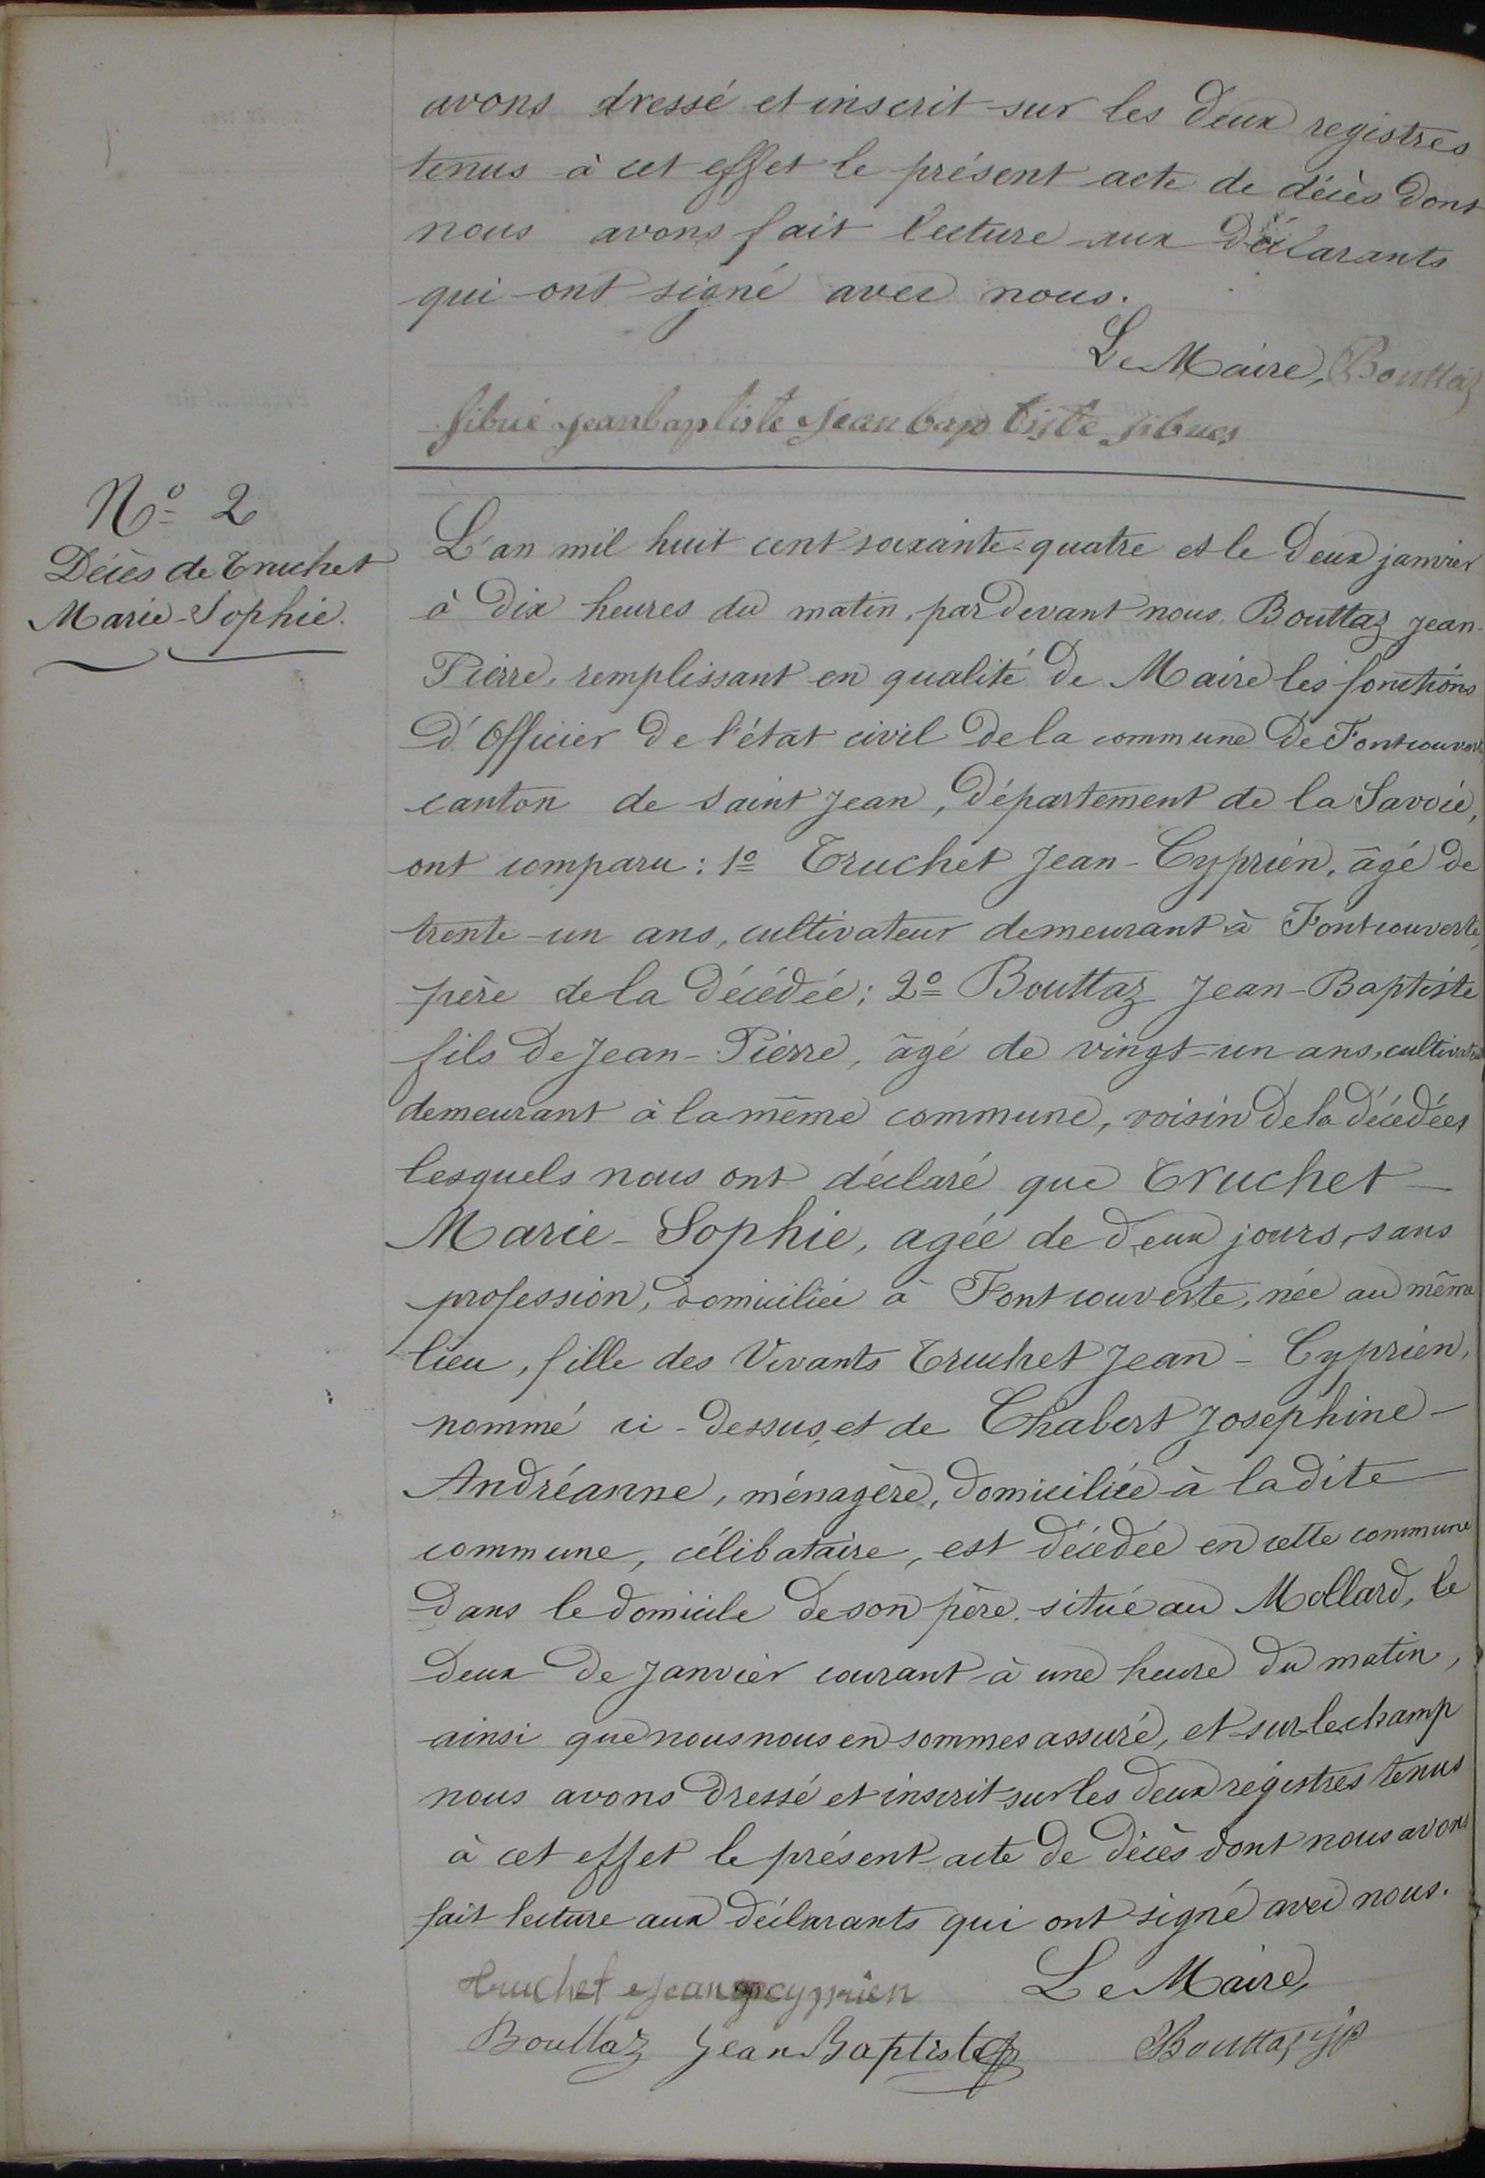 avons dressé et inscrit sur les deux registres
tenus à cet effet le présent acte de décès dont
nous avons fait lecture aux déclarants
qui ont signé avec nous.
Le Maire, Bouttaz
Sibué jeanbaptiste Jean baptiste sibues
N° 2
Décès de Truchet
Marie-Sophie.
L'an mil huit cent soixante-quatre et le deux janvier
à dix heures du matin, par devant nous Bouttaz Jean-
Pierre, remplissant en qualité de Maire les fonctions
d'Officier de l'état civil de la commune de Fontcouverte
canton de Saint Jean, département de la Savoie,
ont comparu : 1° Truchet Jean-Cyprien, âgé de
trente-un ans, cultivateur demeurant à Fontcouverte,
père de la décédée ; 2° Bouttaz Jean-Baptiste
fils de Jean-Pierre, âgé de vingt-un ans, cultivateur
demeurant à la même commune, voisin de la décédée,
lesquels nous ont déclaré que Truchet
Marie-Sophie, agée de deux jours, sans
profession, domiciliée à Fontcouverte, née au même
lieu, fille des vivants Truchet Jean-Cyprien,
nommé ci-dessus, et de Chabert Josephine-
Andréanne, ménagère, domiciliée à la dite
commune, célibataire, est décédée en cette commune
dans le domicile de son père situé au Mollard, le
deux de janvier courant à une heure du matin,
ainsi que nous nous en sommes assuré, et sur le champ
nous avons dressé et inscrit sur les deux registres tenus
à cet effet le présent acte de décès dont nous avons
fait lecture aux déclarants qui ont signé avec nous.
truchet Jean cyprien Le Maire,
Bouttaz Jean Baptiste Bouttaz jp